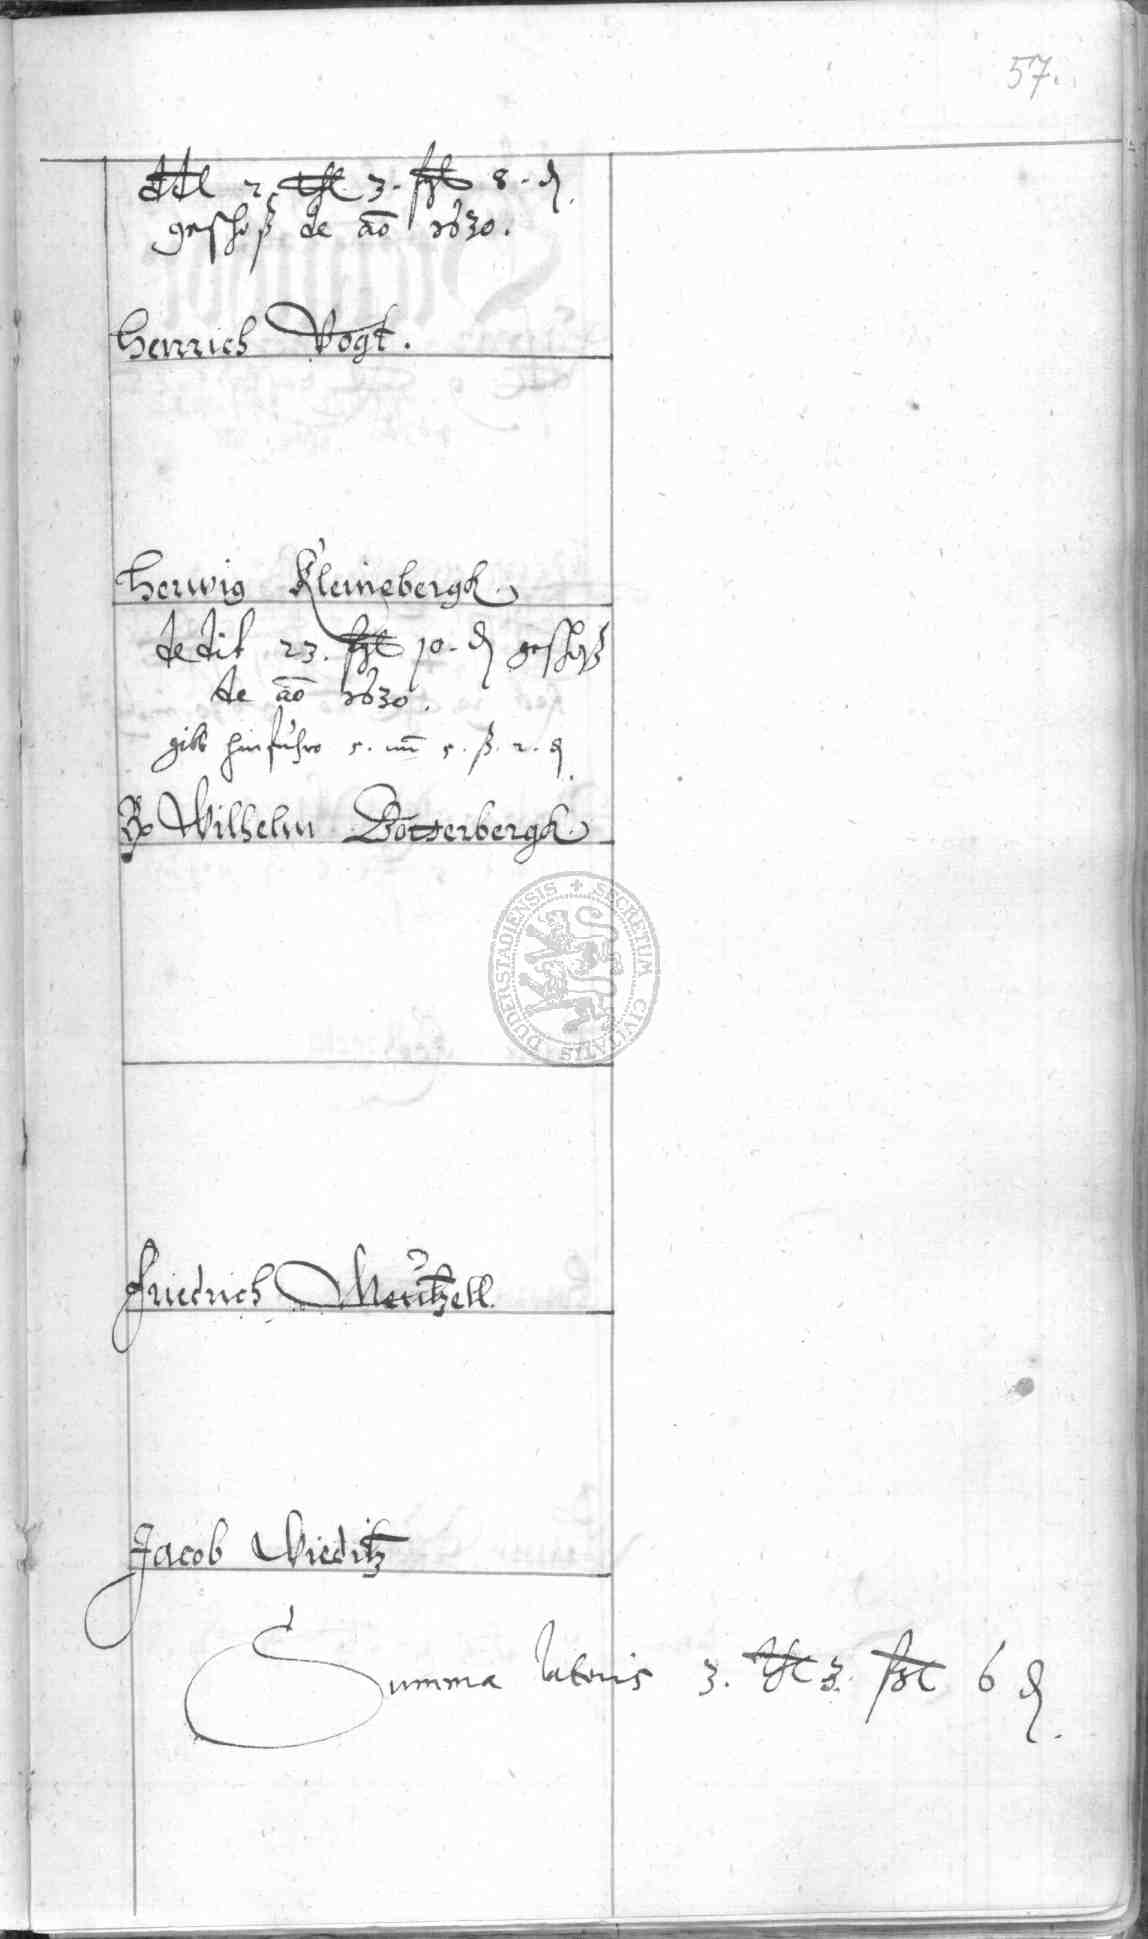 57.
ddt 2. thl 3. ßl 8. ₰.
geschoß de ao 1630.
Henrich Vogt.
Herwig Kleinebergk.
dedit 23. ßl 10. ₰ geschoß
de ao 1630.
gibt hinfuhro 5. 5. ß. 2. ₰
Wilhelm Dotterbergk.
SECRETUM CIVITATIS DUDERSTADIENSIS
Friedrich Meützell.
Jacob Wieditz
Summa lateris 3. thl 3. ßl 6 ₰.